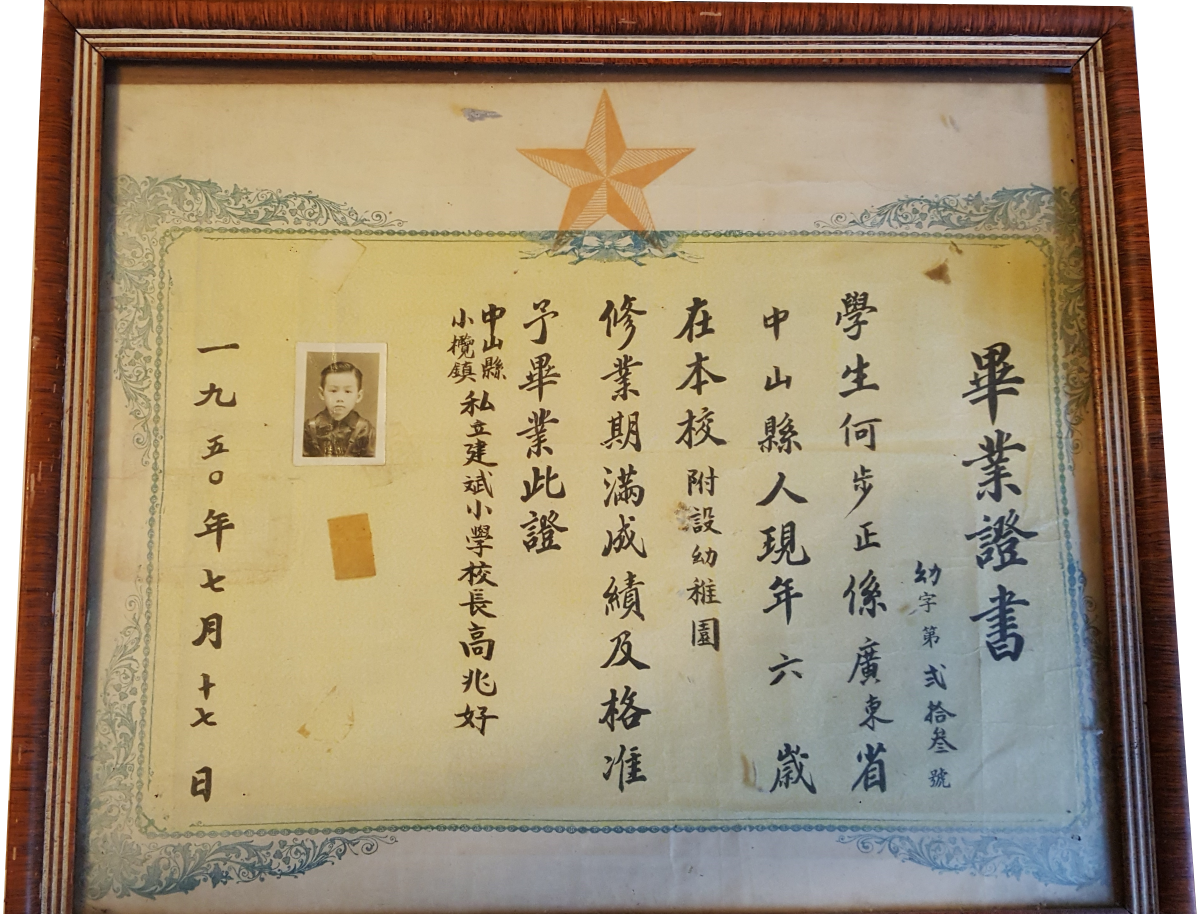 畢業證書
幼字第弍拾叁號
學生何步正係廣東省
中山縣人現年六歲
在本校附設幼稚園
修業期滿成績及格准
予畢業此證
中山縣
小欖鎮
私立建斌小學校長高兆好
一九五〇年七月十七日